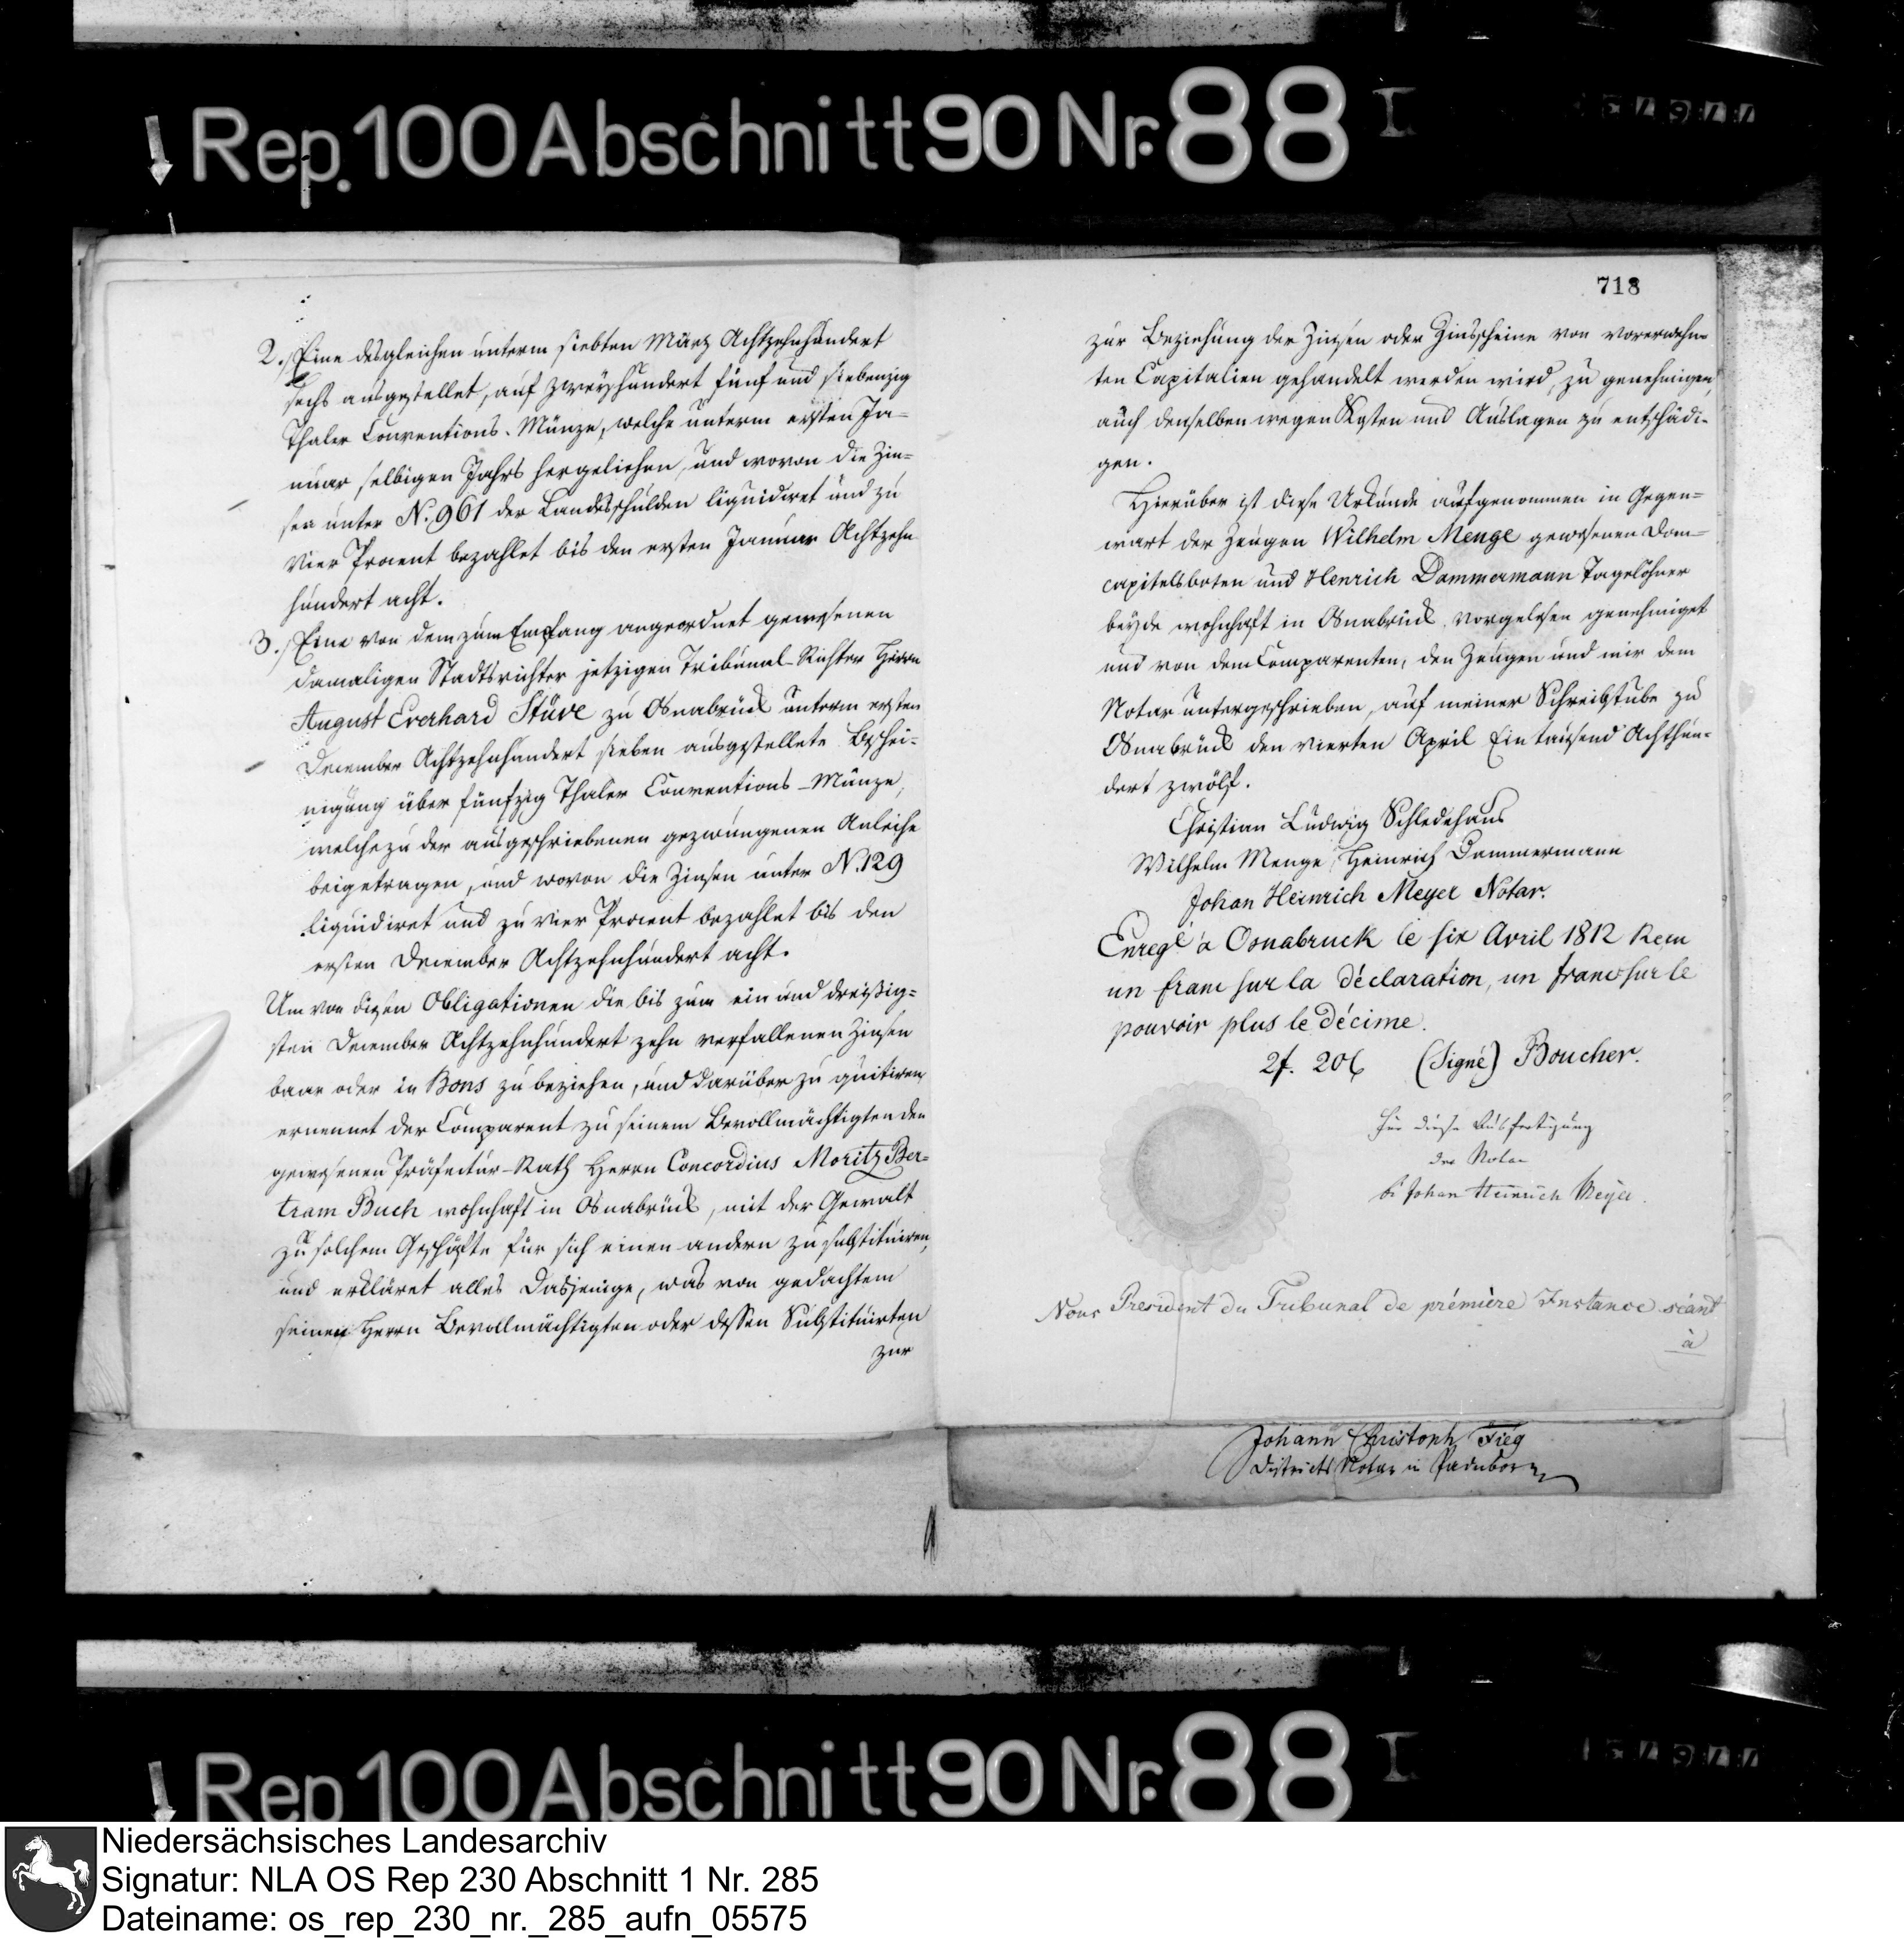 Rep. 100 Abschnitt 90 Nr. 88 I
2.) Eine desgleichen unterm siebten März Achtzehnhundert
sechs ausgestellet, auf zweyhundert fünf und siebenzig
Thaler Conventions-Münze, welche unterm ersten Ja-
nuar selbigen Jahrs hergeliehen, und wovon die Zin-
sen unter N. 961 der Landesschulden liquidiret und zu
Vier Procent bezahlet bis den ersten Januar Achtzehn
hundert acht.
3.) Eine von dem zum Empfang angeordnet gewesenen
damaligen Stadtsrichter jetzigen Tribunal-Richter Herrn
August Everhard Stüve zu Osnabrück unterm ersten
December Achtzehnhundert sieben ausgestellete Beschei-
nigung über fünfzig Thaler Conventions-Münze,
welche zu der ausgeschriebenen gezwungenen Anleihe
beigetragen, und wovon die Zinsen unter N. 129
liquidiret und zu vier Procent bezahlet bis den
ersten December Achtzehnhundert acht.
Um von diesen Obligationen die bis zum ein und dreißig-
sten December Achtzehnhundert zehn verfallenen Zinsen
baar oder in Bons zu beziehen, und darüber zu quitiren,
ernennet der Comparent zu seinem Bevollmächtigten den
gewesenen Präfectur-Rath Herrn Concordius Moritz Ber-
tram Buch wohnhaft in Osnabrück, mit der Gewalt
zu solchem Geschäfte für sich einen andern zu substituiren,
und erkläret alles dasjenige, was von gedachtem
seinen Herrn Bevollmächtigten oder dessen Substituirten
zur
718
zur Beziehung der Zinsen oder Zinsscheine von vorerwehn-
ten Capitalien gehandelt werden wird, zu genehmigen,
auch denselben wegen Kosten und Auslagen zu entschädi-
gen.
Hierüber ist diese Urkunde aufgenommen in Gegen-
wart der Zeugen Wilhelm Menge gewesenen Dom-
capitelsboten und Henrich Dammermann Tagelöhner
beyde wohnhaft in Osnabrück, vorgelesen genehmiget
und von dem Comparenten, den Zeugen und mir dem
Notar untergeschrieben, auf meiner Schreibstube zu
Osnabrück den vierten April Ein tausend Achthun-
dert zwölf.
Christian Ludwig Schledehaus
Wilhelm Menge, Heinrich Dammermann
Johan Heinrich Meyer Notar.
Enregé à Osnabruck le six Avril 1812 Recu
un franc sur la déclaration, un franc sur le
pouvoir plus le décime.
2f. 20c (Signé) Boucher.
Für diese Ausfertigung
der Notar
Johan Heinrich Meyer.
Nous President du Tribunal de prémière Instance séant
à
Johann Christoph Fieg
Districts Notar in Paderborn
Rep 100 Abschnitt 90 Nr. 88 I
Niedersächsisches Landesarchiv
Signatur: NLA OS Rep 230 Abschnitt 1 Nr. 285
Dateiname: os_rep_230_nr._285_aufn_05575